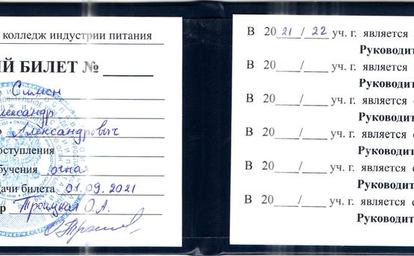 колледж индустрии питания
БИЛЕТ № ______
Симон
Александр
Александрович
обучения очная
дачи билета 01.09.2021
Троицкая О.А.
В 20 21 / 22 уч. г. является
Руководит
В 20____/____ уч. г. является
Руководит
В 20____/____ уч. г. является
Руководит
В 20____/____ уч. г. является
Руководите
В 20____/____ уч. г. является
Руководите
В 20____/____ уч. г. является
Руководите